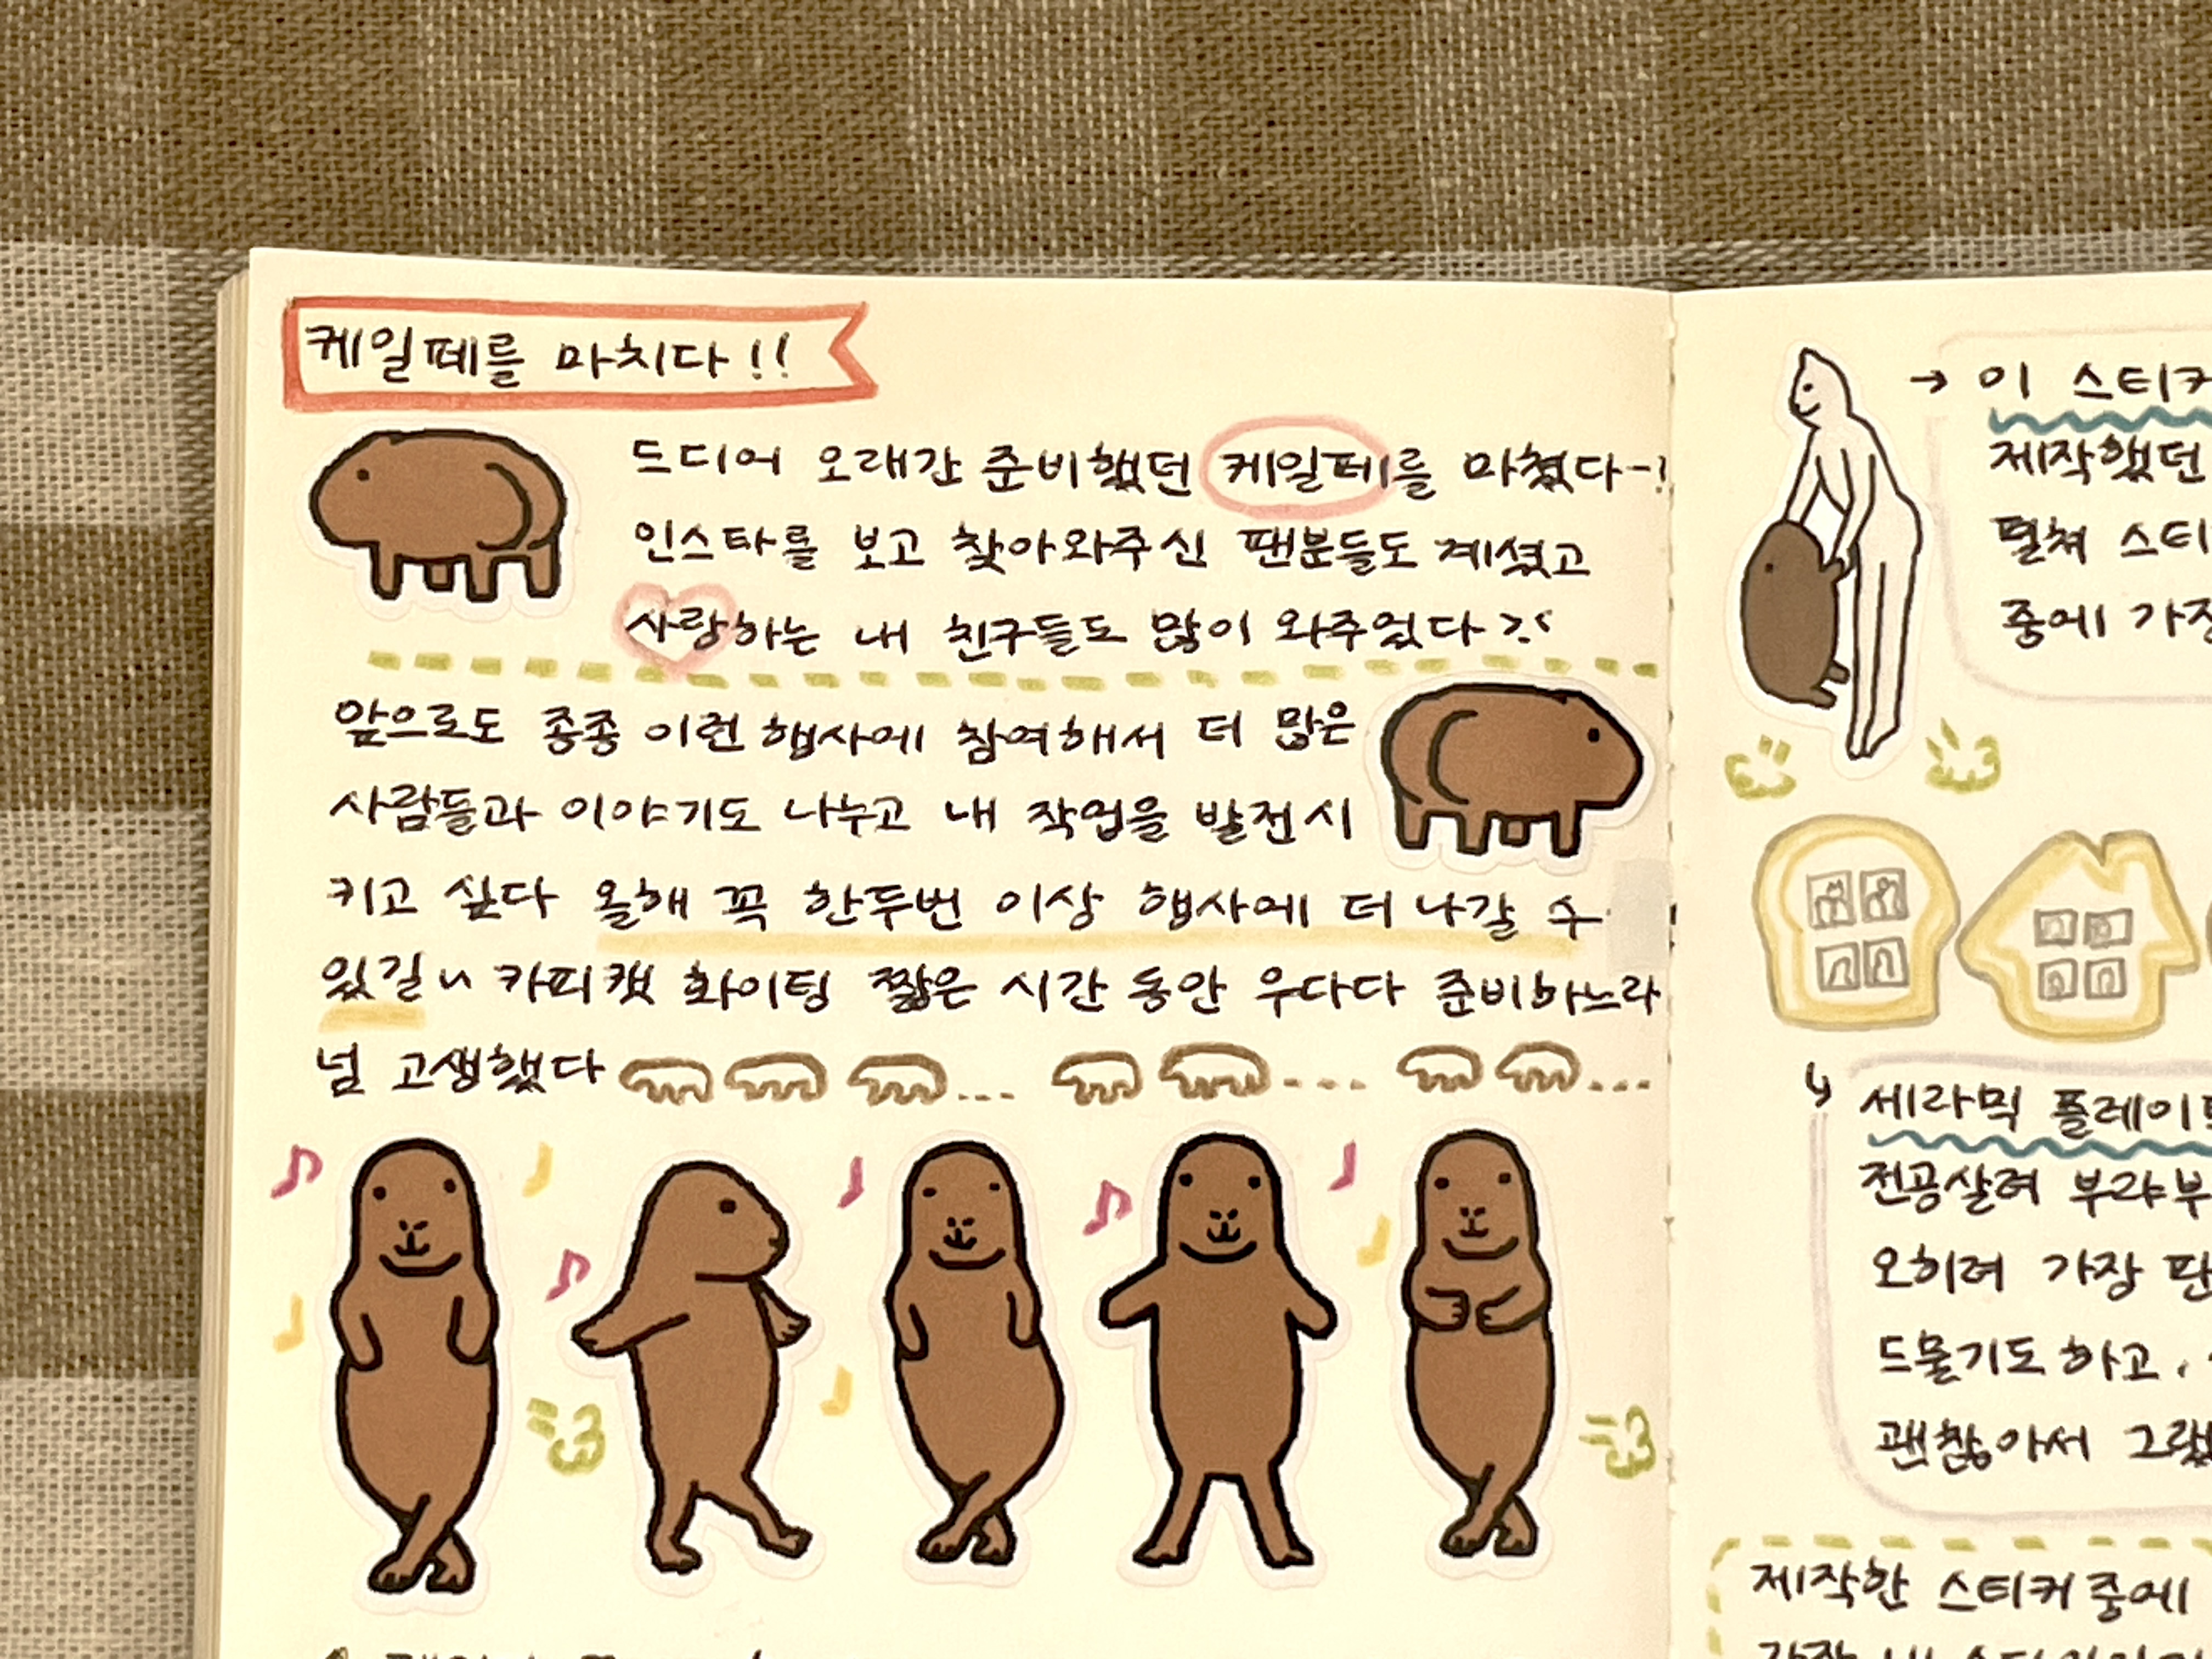 케일페를 마치다!!
드디어 오래간 준비했던 케일페를 마쳤다-!
인스타를 보고 찾아와주신 팬분들도 계셨고
사랑하는 내 친구들도 많이 와주었다
앞으로도 종종 이런 행사에 참여해서 더 많은
사람들과 이야기도 나누고 내 작업을 발전시
키고 싶다 올해 꼭 한두번 이상 행사에 더 나갈 수
있길 카피캣 화이팅 짧은 시간 동안 우다다 준비하느라
넘 고생했다
→ 이 스티커
제작했던
펼쳐
중에 가장
세라믹 플레이트
전공살려
오히려 가장
드물기도 하고,
괜찮아서
제작한 스티커 중에